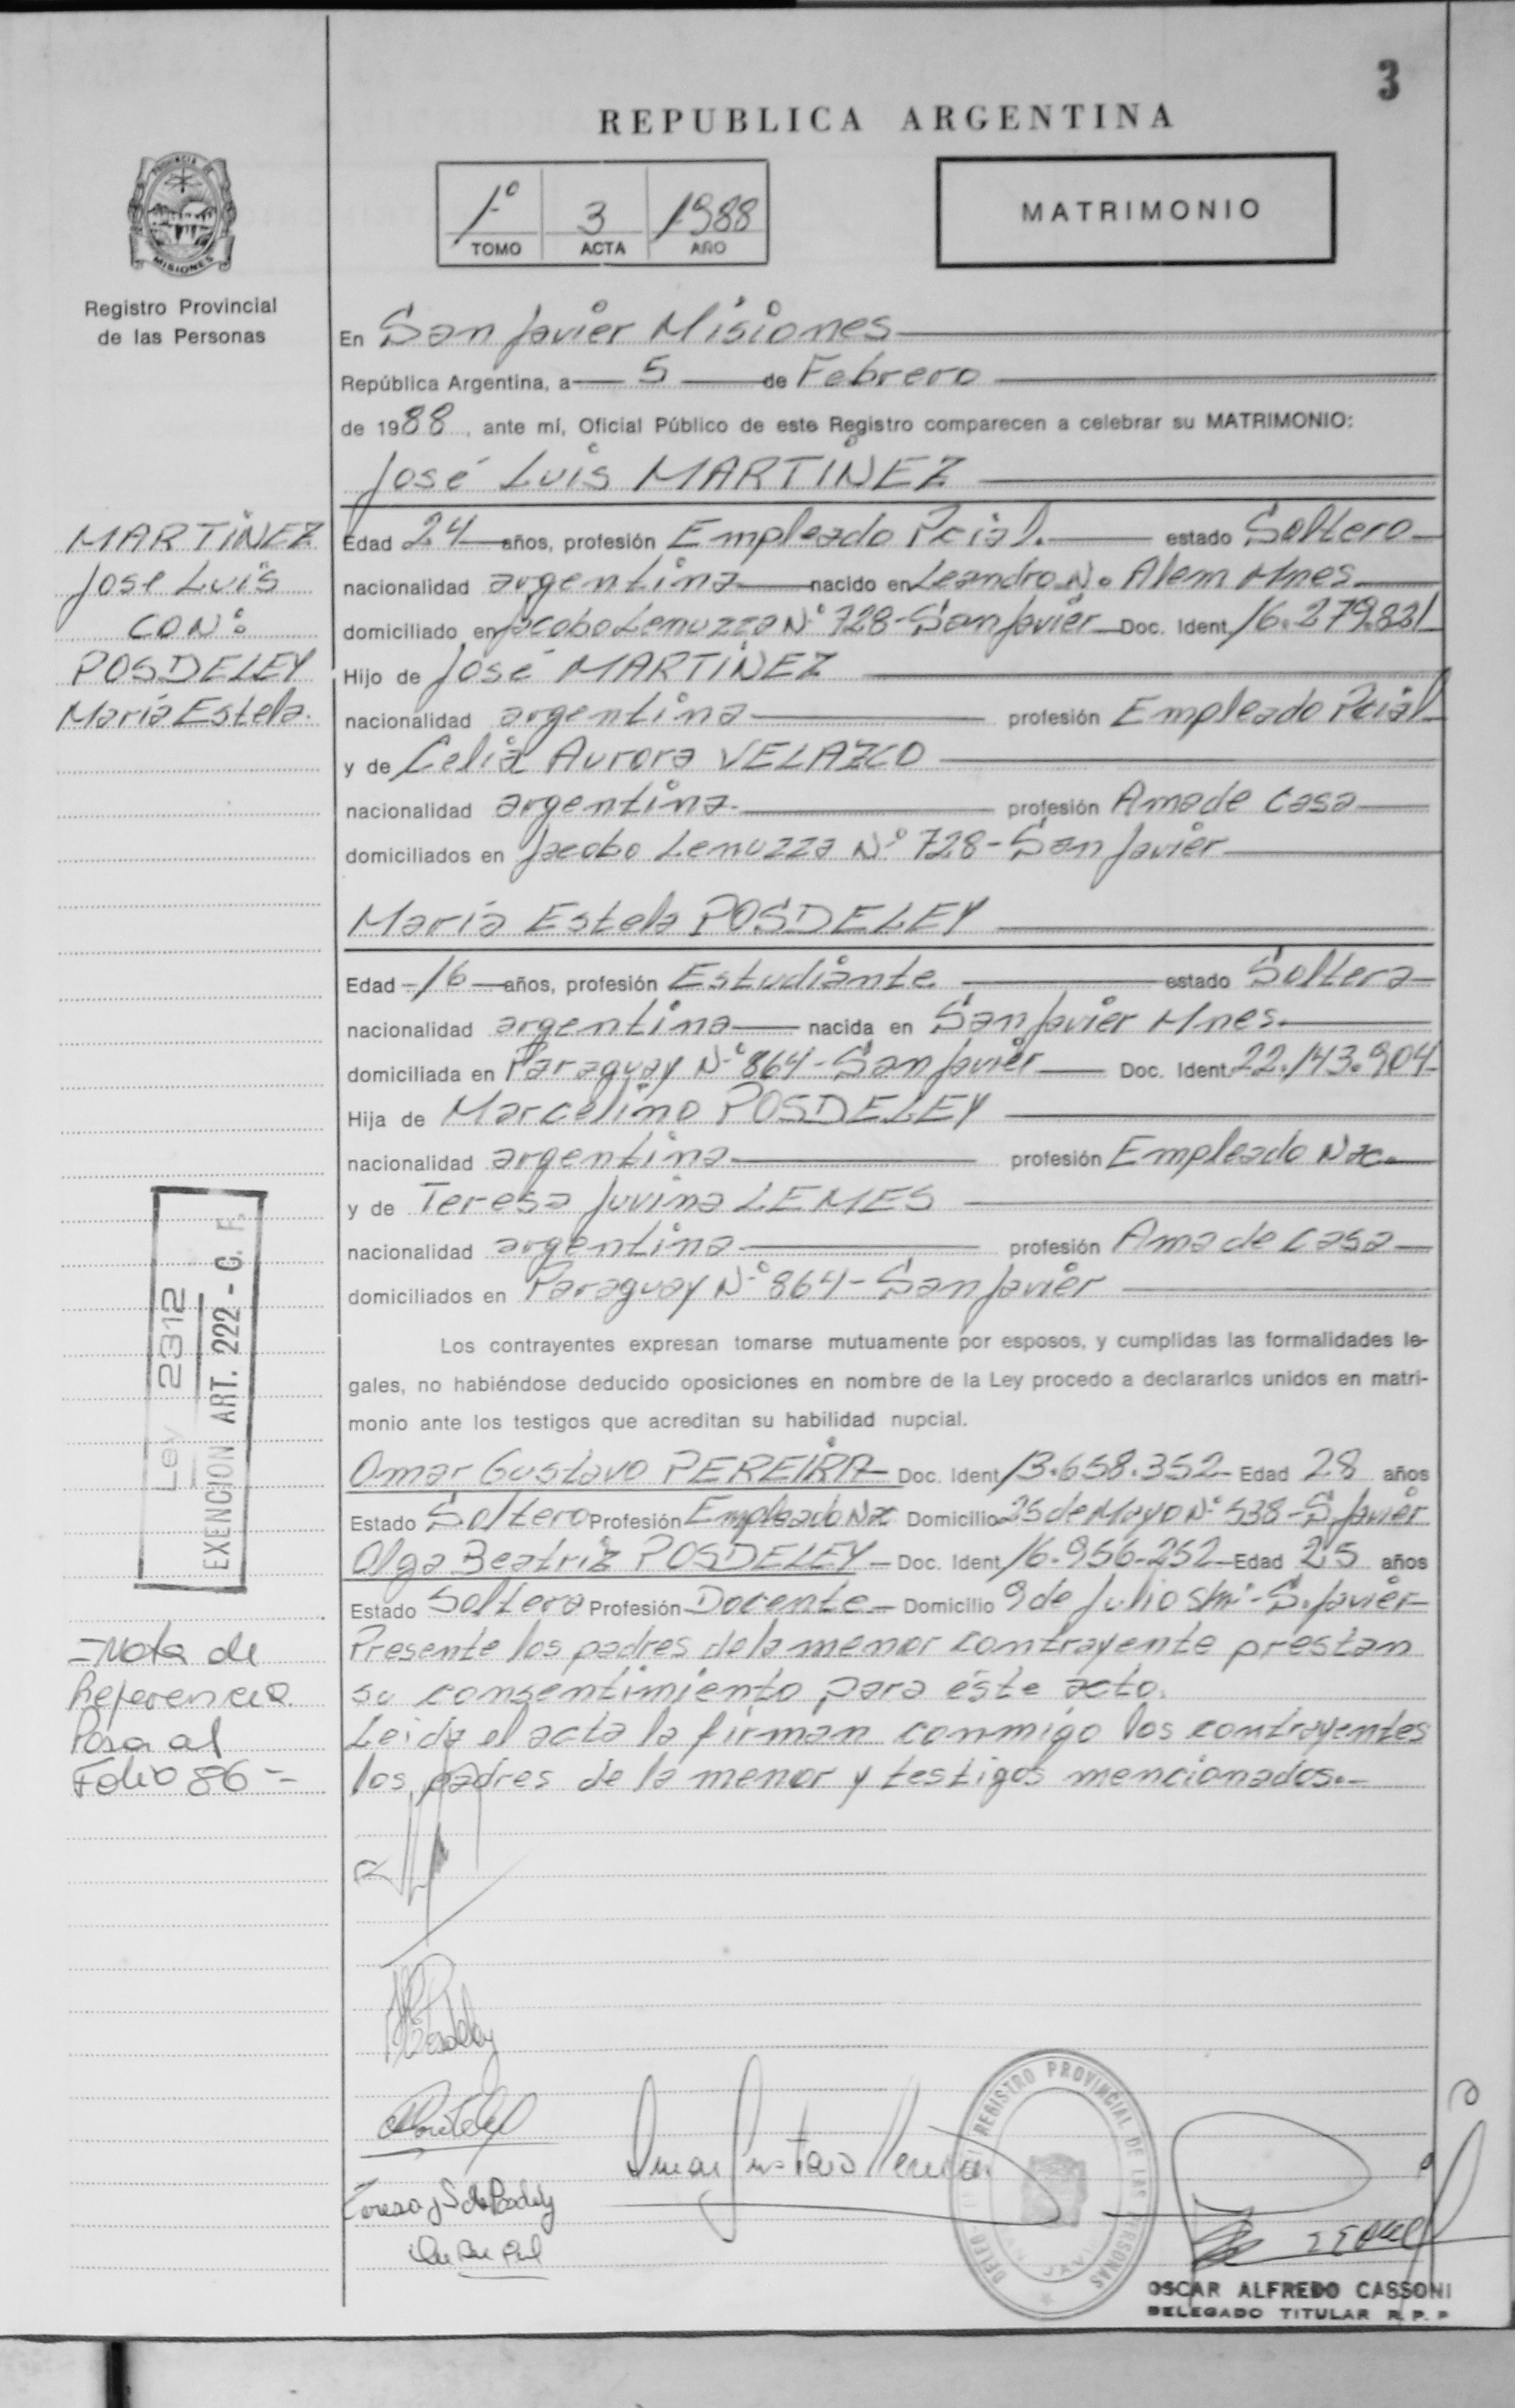 3
REPUBLICA ARGENTINA
PROVINCIA DE
MISIONES
1º 3 1988
TOMO ACTA AÑO
MATRIMONIO
Registro Provincial
de las Personas
En San Javier Misiones
República Argentina, a 5 de Febrero
de 1988, ante mí, Oficial Público de este Registro comparecen a celebrar su MATRIMONIO:
José Luis MARTINEZ
MARTINEZ
José Luis
CON:
POSDELEY
María Estela.
Edad 24 años, profesión Empleado Pcial. estado Soltero
nacionalidad argentina nacido en Leandro N. Alem Mnes.
domiciliado en Jacobo Lenuzza Nº 728-San Javier Doc. Ident. 16.279.821
Hijo de José MARTINEZ
nacionalidad argentina profesión Empleado Pcial
y de Celia Aurora VELAZCO
nacionalidad argentina. profesión Ama de casa
domiciliados en Jacobo Lenuzza Nº 728-San Javier
María Estela POSDELEY
Edad 16 años, profesión Estudiante estado Soltera
nacionalidad argentina nacida en San Javier Mnes.
domiciliada en Paraguay Nº 864-San Javier Doc. Ident. 22.143.904
Hija de Marcelino POSDELEY
nacionalidad argentina profesión Empleado Nac.
y de Teresa Juvina LEMES
nacionalidad argentina profesión Ama de casa
domiciliados en Paraguay Nº 864-San Javier
Los contrayentes expresan tomarse mutuamente por esposos, y cumplidas las formalidades le-
gales, no habiéndose deducido oposiciones en nombre de la Ley procedo a declararlos unidos en matri-
monio ante los testigos que acreditan su habilidad nupcial.
Ley 2312
EXENCION ART. 222 - C. F.
Omar Gustavo PEREIRA Doc. Ident. 13.658.352 Edad 28 años
Estado Soltero Profesión Empleado Nac Domicilio 25 de Mayo Nº 538-S. Javier
Olga Beatriz POSDELEY Doc. Ident. 16.956.252 Edad 25 años
Estado Soltera Profesión Docente Domicilio 9 de Julio S/nº-S. Javier
Presente los padres de la menor contrayente prestan
su consentimiento para éste acto.
Leída el acta la firman conmigo los contrayentes
los padres de la menor y testigos mencionados.-
-Nota de
Referencia
Pasa al
Folio 86-
Omar Gustavo Pereira
REGISTRO PROVINCIAL DE LAS PERSONAS
OSCAR ALFREDO CASSONI
DELEGADO TITULAR R. P. P